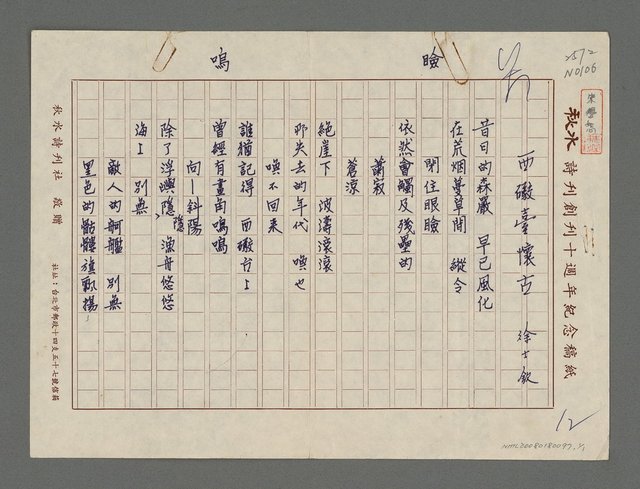 2572
N0106
秋水 詩刊創刊十週年紀念稿紙
西磁臺懷古 徐士欽
昔日的森嚴 早已風化
在荒烟蔓草間 縱令
閉住眼瞼
依然會觸及殘壘的
蕭寂
蒼涼
絕崖下 波濤滾滾
那失去的年代 喚也
喚不回來
誰猶記得 西磁台上
曾經有畫角嗚嗚
向一斜陽
除了浮嶼隱隱、漁舟悠悠
海上 別無
敵人的舸艦 別無
黑色的骷髏旗飄揚
瞼
嗚
秋水詩刊社 敬贈
社址：台北市郵政十四支五十七號信箱
12
NMTL20080180097